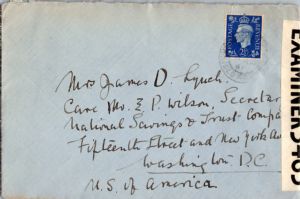 POSTAGE REVENUE
2½
Mrs James D. Lynch.
Care Mr. E P. Wilson, Secretar
National Savings & Trust Compa
Fifteenth Street and New York Av
Washington. D.C.
U.S. of America
EXAMINER